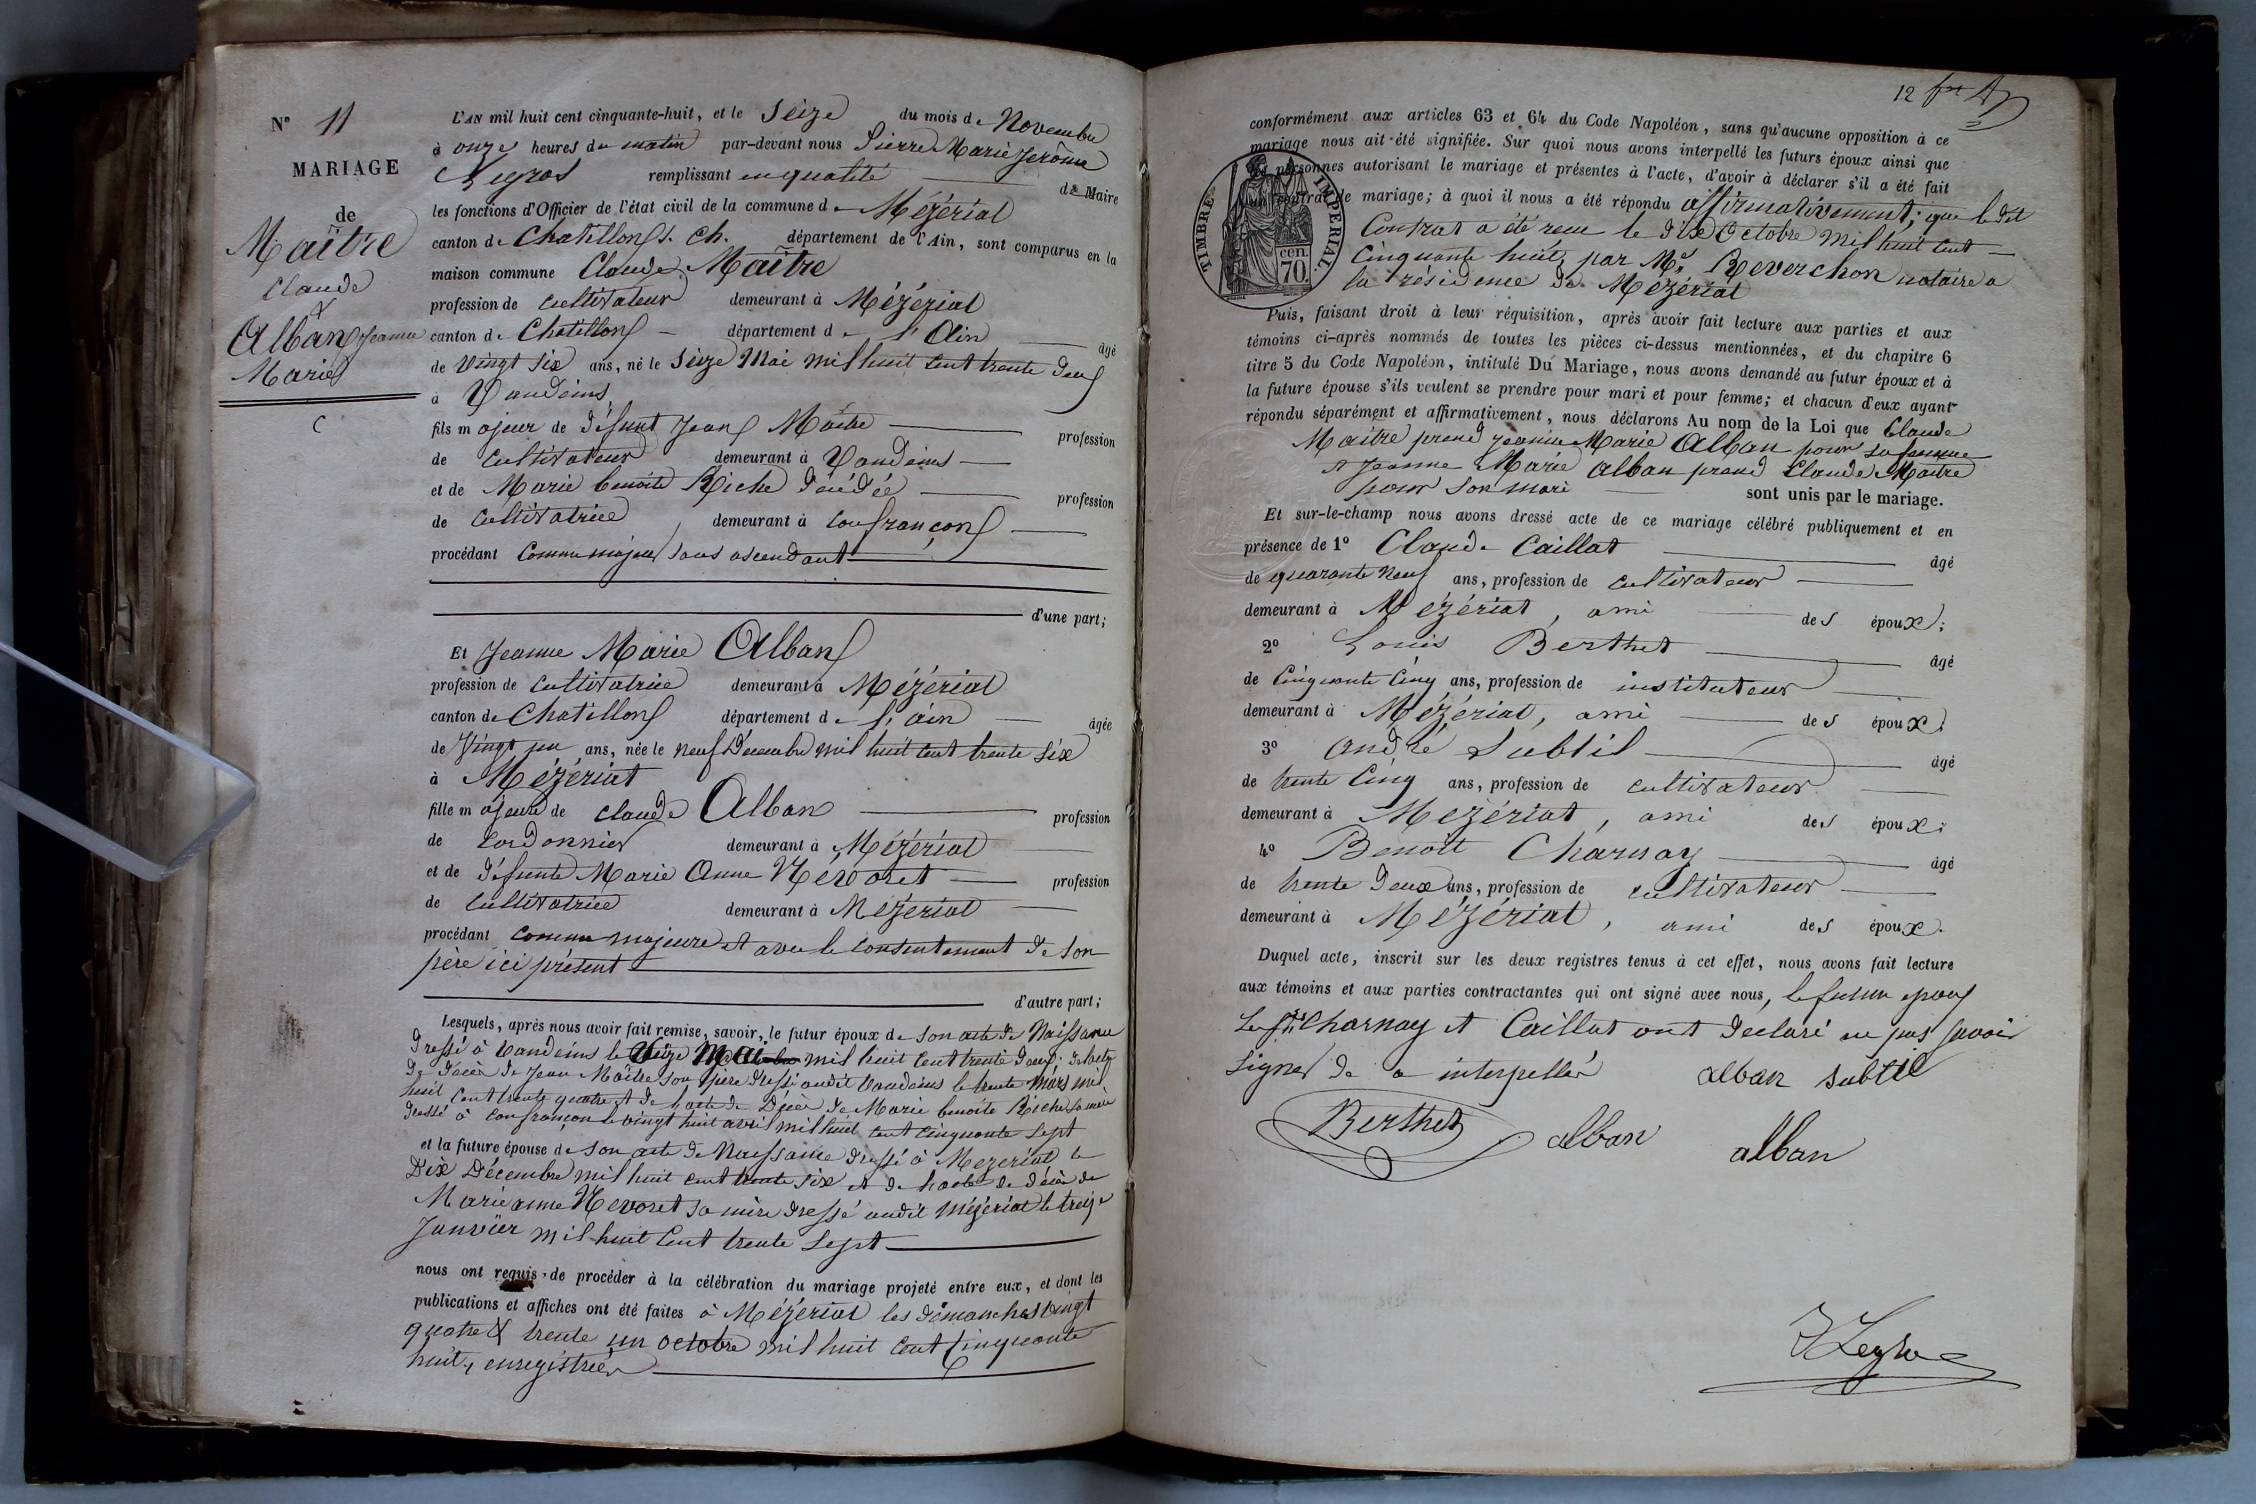 N° 11
MARIAGE
de
Maître
Claude
&
Alban Jeanne
Marie
L'AN mil huit cent cinquante-huit, et le Seize du mois de Novembre
à onze heures du matin par-devant nous Pierre Marie Jerôme
Neyros remplissant en qualité de Maire
les fonctions d'Officier de l'état civil de la commune de Mézériat
canton de Chatillon s. Ch. département de l'Ain, sont comparus en la
maison commune Claude Maître
profession de cultivateur demeurant à Mézériat
canton de Chatillon département de l'Ain âgé
de Vingt six ans, né le Seize Mai mil huit cent trente deux
à Vandeins
fils majeur de défunt Jean Maître profession
de cultivateur demeurant à Vandeins
et de Marie benoite Riche décédée profession
de cultivatrice, demeurant à Confrançon
procédant comme majeur sans ascendant
d'une part;
Et Jeanne Marie Alban
profession de cultivatrice demeurant à Mézériat
canton de Chatillon département de l'ain âgée
de Vingt un ans, née le neuf Décembre mil huit cent trente six
à Mézériat
fille majeure de Claude Alban profession
de Cordonnier demeurant à Mézériat
et de défunte Marie Anne Nevoret profession
de cultivatrice demeurant à Mézériat
procédant comme majeure et avec le consentement de son
père ici présent
d'autre part;
Lesquels, après nous avoir fait remise, savoir, le futur époux de son acte de Naissance
dressé à Vandeins le Seize Mai mil huit cent trente deux; de l'acte
de décès de Jean Maître son père dressé audit Vandeins le trente mars mil
huit cent trente quatre et de l'acte de Décès de Marie benoite Riche sa mère
dressé à Confrançon le vingt huit avril mil huit cent cinquante sept
et la future épouse de son acte de Naissance dressé à Mezeriat le
Dix Décembre mil huit cent trente six et de l'acte de décès de
Marie anne Nevoret sa mère dressé audit Mézériat le treize
Janvier mil huit cent trente sept
nous ont requis de procéder à la célébration du mariage projeté entre eux, et dont les
publications et affiches ont été faites à Mézériat les dimanches vingt
quatre & trente un octobre mil huit cent cinquante
huit, enregistrées
12
conformément aux articles 63 et 64 du Code Napoléon, sans qu'aucune opposition à ce
mariage nous ait été signifiée. Sur quoi nous avons interpellé les futurs époux ainsi que
les personnes autorisant le mariage et présentes à l'acte, d'avoir à déclarer s'il a été fait
un contrat de mariage; à quoi il nous a été répondu affirmativement; que ledit
Contrat a été reçu le dix Octobre mil huit cent
Cinquante huit, par Me. Reverchon notaire a
la résidence de Mézériat
TIMBRE IMPERIAL
cen.
70.
Puis, faisant droit à leur réquisition, après avoir fait lecture aux parties et aux
témoins ci-après nommés de toutes les pièces ci-dessus mentionnées, et du chapitre 6
titre 5 du Code Napoléon, intitulé Du Mariage, nous avons demandé au futur époux et à
la future épouse s'ils veulent se prendre pour mari et pour femme; et chacun d'eux ayant
répondu séparément et affirmativement, nous déclarons Au nom de la Loi que Claude
Maitre prend Jeanne Marie Alban pour sa femme
et Jeanne Marie Alban prend Claude Maitre
pour son mari sont unis par le mariage.
Et sur-le-champ nous avons dressé acte de ce mariage célébré publiquement et en
présence de 1° Claude Caillat âgé
de quarante neuf ans, profession de cultivateur
demeurant à Mézériat, ami des époux;
2° Louis Berthet âgé
de Cinquante Cinq ans, profession de instituteur
demeurant à Mézériat, ami des époux;
3° André Subtil âgé
de trente Cinq ans, profession de cultivateur
demeurant à Mezériat, ami des époux;
4° Benoit Charnay âgé
de trente deux ans, profession de cultivateur
demeurant à Mézériat, ami des époux.
Duquel acte, inscrit sur les deux registres tenus à cet effet, nous avons fait lecture
aux témoins et aux parties contractantes qui ont signé avec nous, le futur epoux
Les Srs Charnay et Caillat ont declaré ne pas savoir
signer de ce interpellés alban subtil
Berthet alban alban